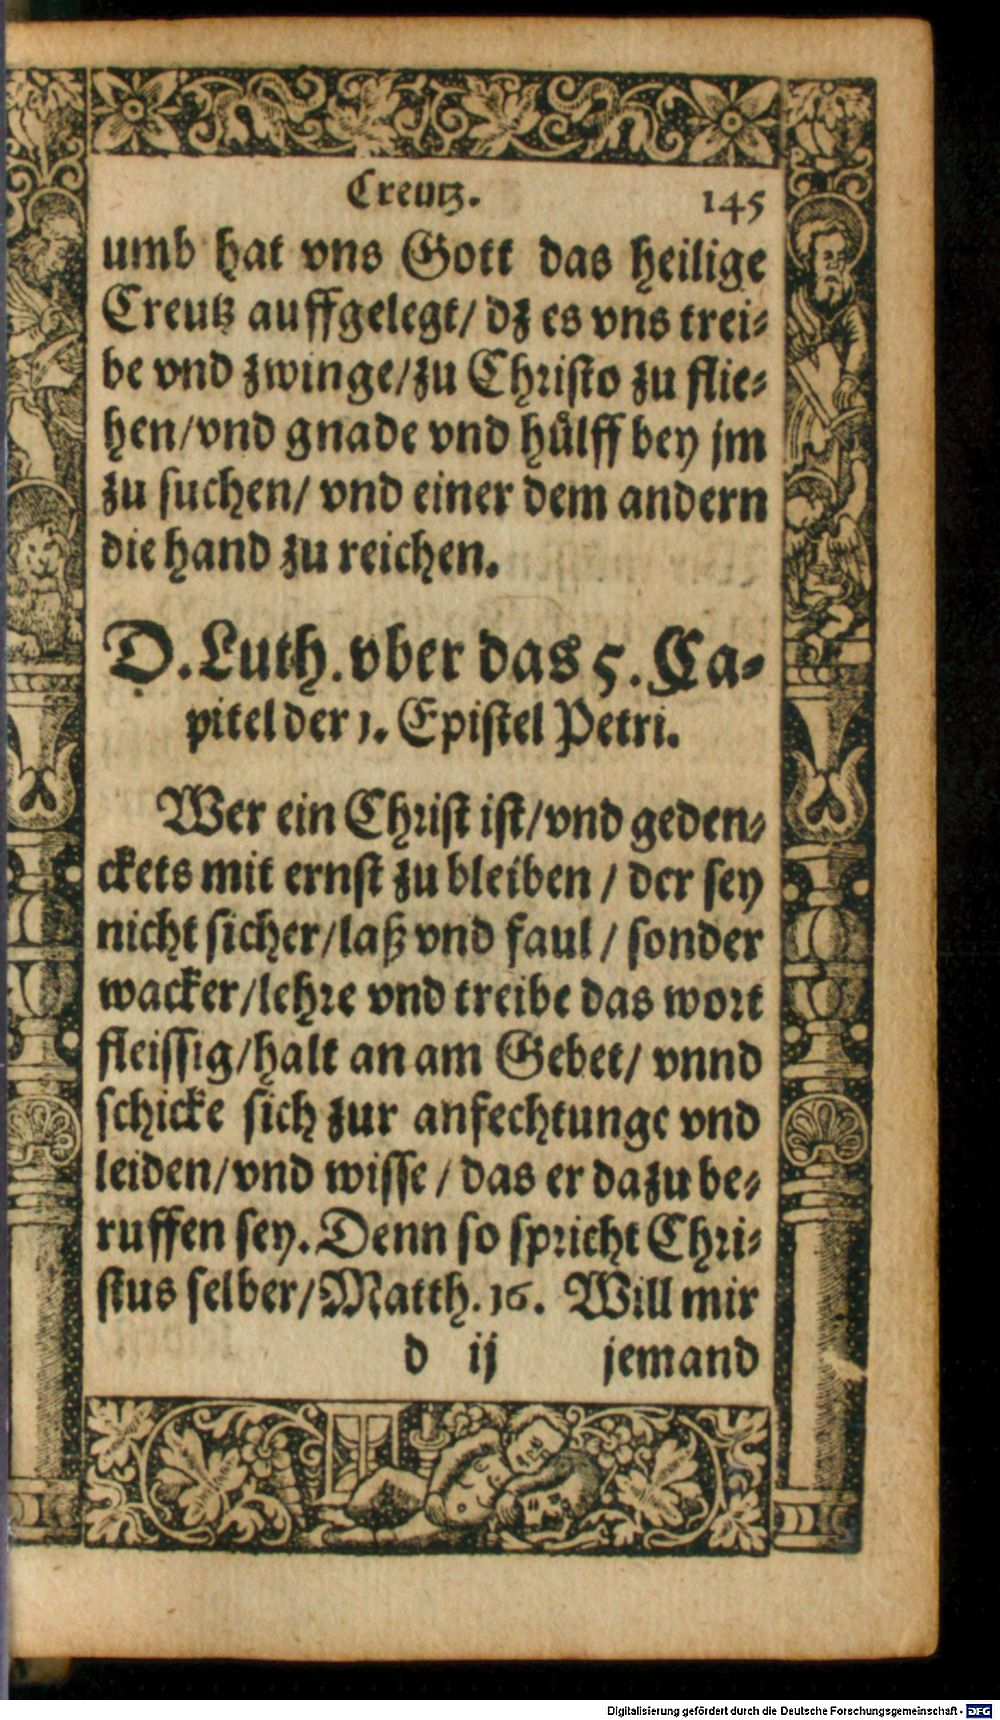 Creutz. 145
umb hat vns Gott das heilige
Creutz auffgelegt/ dz es vns trei⸗
be vnd zwinge/zu Christo zu flie⸗
hen/vnd gnade vnd huͤlff bey jm
zu suchen/ vnd einer dem andern
die hand zu reichen.
D. Luth. vber das 5. Ca⸗
pitel der 1. Epistel Petri.
Wer ein Christ ist/vnd geden⸗
ckets mit ernst zu bleiben / der sey
nicht sicher/laß vnd faul / sonder
wacker/lehre vnd treibe das wort
fleissig/halt an am Gebet/ vnnd
schicke sich zur anfechtunge vnd
leiden/vnd wisse / das er dazu be⸗
ruffen sey. Denn so spricht Chri⸗
stus selber/Matth. 16. Will mir
d ij jemand
Digitalisierung gefördert durch die Deutsche Forschungsgemeinschaft - DFG